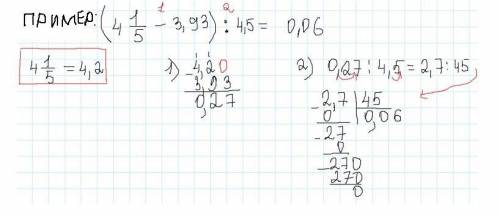 ПРИМЕР: (4 1/5 - 3,93) : 4,5 = 0,06
1 2
4 1/5 = 4,2
1) 4,20
- 3,93
0,27
2) 0,27 : 4,5 = 2,7 : 45
- 2,7 | 45
0 | 0,06
- 27
0
- 270
270
0